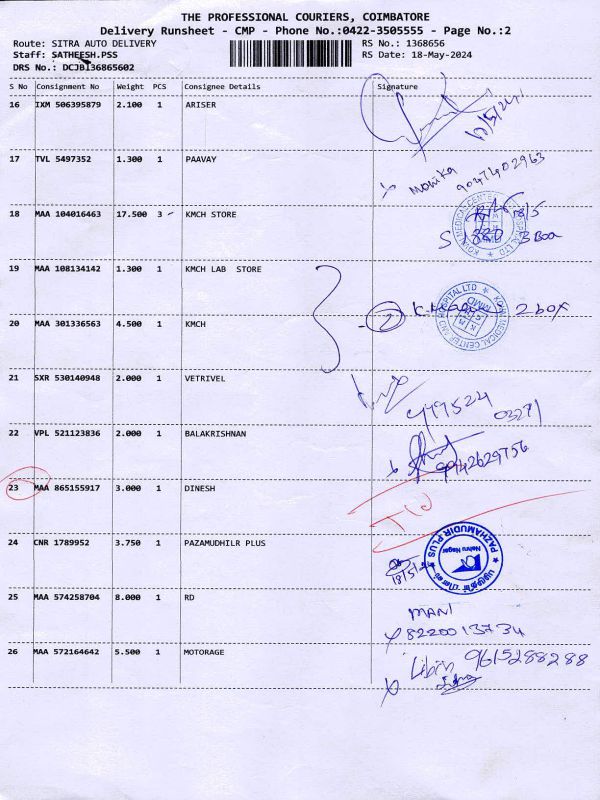 THE PROFESSIONAL COURIERS, COIMBATORE
Delivery Runsheet - CMP - Phone No.:0422-3505555 - Page No.:2
Route: SITRA AUTO DELIVERY RS No.: 1368656
Staff: SATHEESH.PSS RS Date: 18-May-2024
DRS No.: DCJB136865602
S No Consignment No Weight PCS Consignee Details Signature
16 IXM 506395879 2.100 1 ARISER
17 TVL 5497352 1.300 1 PAAVAY
Monika 9047402963
18 MAA 104016463 17.500 3 KMCH STORE
18/5
3 Box
19 MAA 108134142 1.300 1 KMCH LAB STORE
2 2 box
20 MAA 301336563 4.500 1 KMCH
21 SXR 530140948 2.000 1 VETRIVEL
03271
22 VPL 521123836 2.000 1 BALAKRISHNAN
9942629756
23 MAA 865155917 3.000 1 DINESH
24 CNR 1789952 3.750 1 PAZAMUDHILR PLUS
PAZHAMUDIR PLUS
Nehru Nagar
25 MAA 574258704 8.000 1 RD
MANI
8220013734
26 MAA 572164642 5.500 1 MOTORAGE
Libin 9615288288